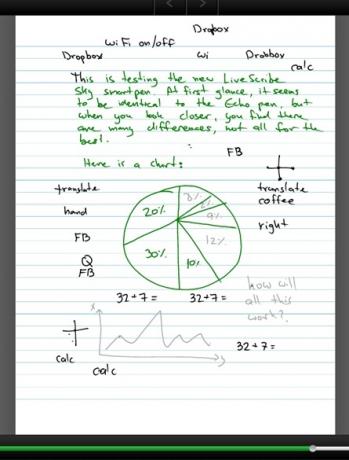 Dropbox
WiFi on/off
Dropbox Wi Drobbox
calc
This is testing the new LiveScribe
Sky smartpen. At first glance, it seems
to be identical to the Echo pen, but
when you look closer, you find there
are many differences, not all for the
best.
FB
Here is a chart:
translate
translate
coffee
hand
right
FB
Q
FB
20%
8%
9%
12%
30%
10%
how will
all this
work?
32+7= 32+7=
x
y
32+7=
calc
calc